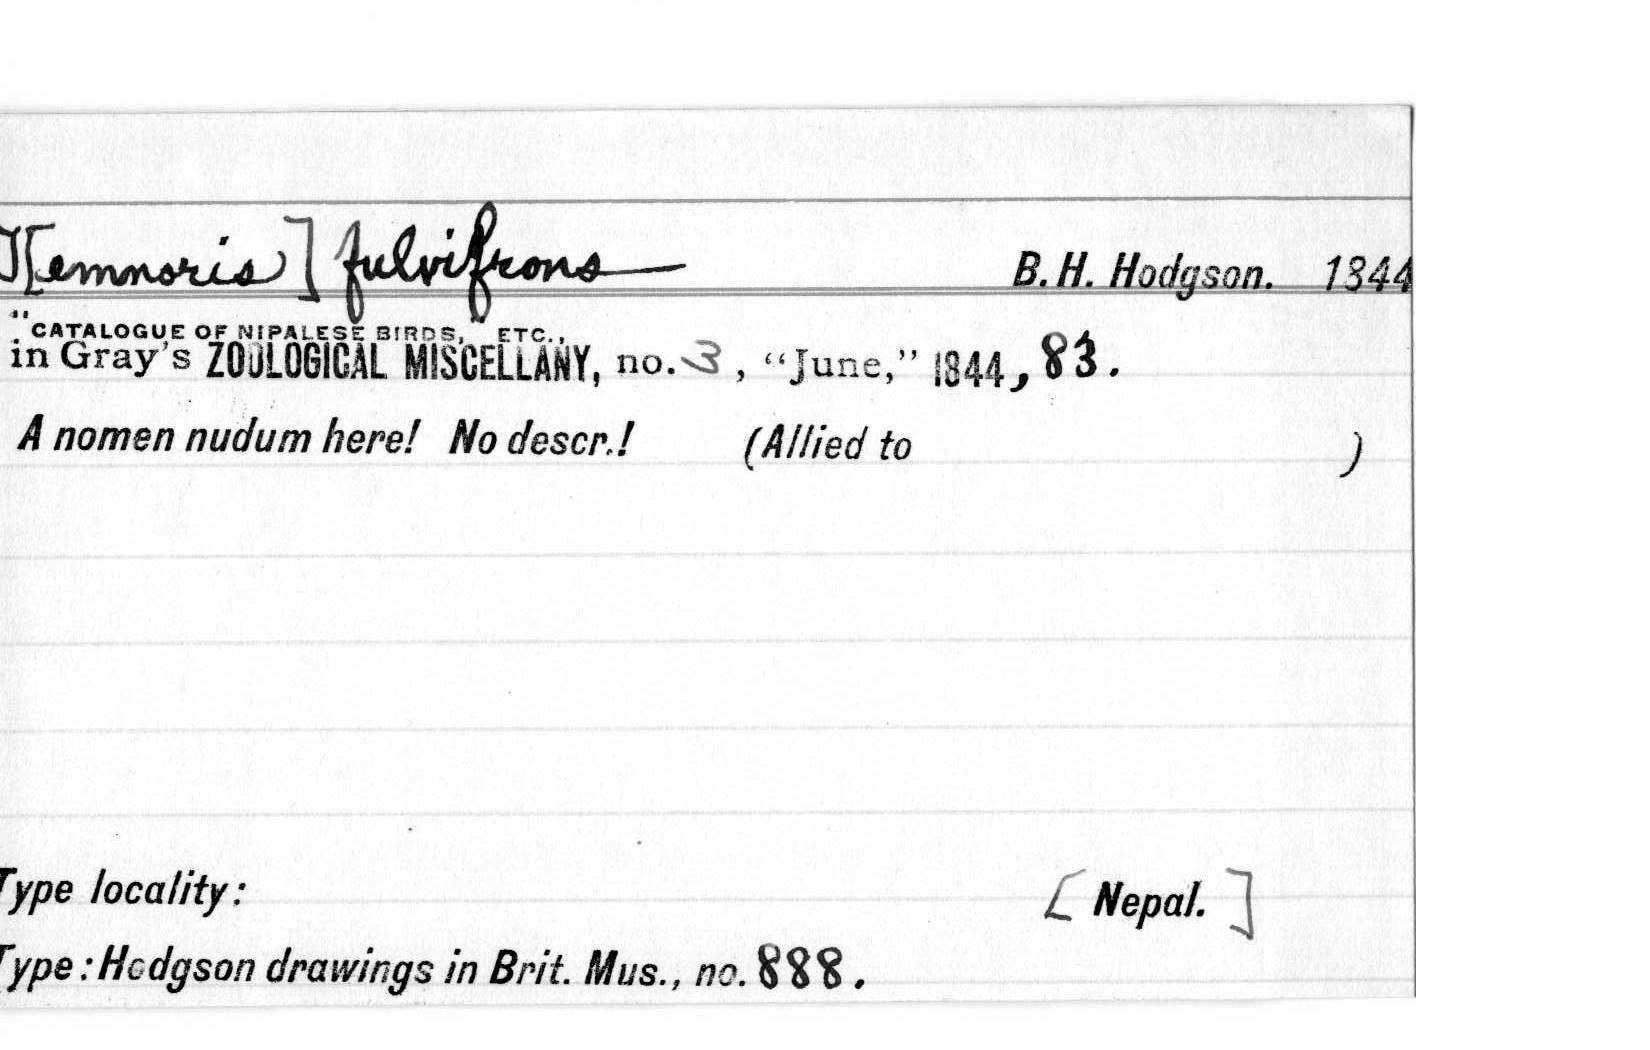 T[emnoris] fulvifrons B. H. Hodgson. 1844
"CATALOGUE OF NIPALESE BIRDS," ETC.,
in Gray's ZOOLOGICAL MISCELLANY, no. 3, "June," 1844, 83.
A nomen nudum here! No descr.! (Allied to )
Type locality: [Nepal.]
Type: Hodgson drawings in Brit. Mus., no. 888.